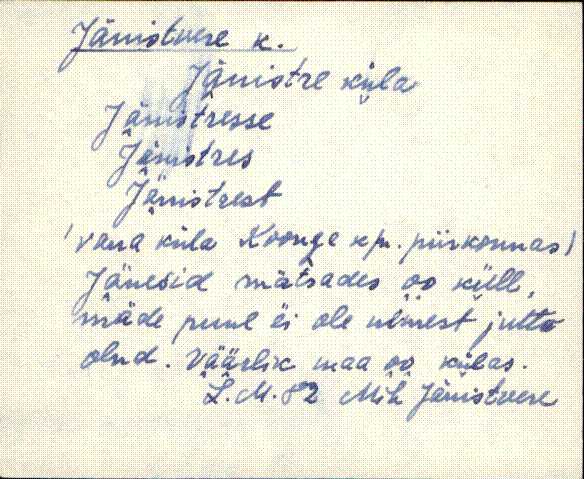 Jänistvere k.
Jänistre küla
Jänistresse
Jänistres
Jänistrest
(vana küla Koonga kp. piirkonnas)
Jänesid mätsades oo küll,
mäde pune äi ole nimest jutto
olnd. Väärlik maa oo külas.
L. M. 82 Mih Jänistvere